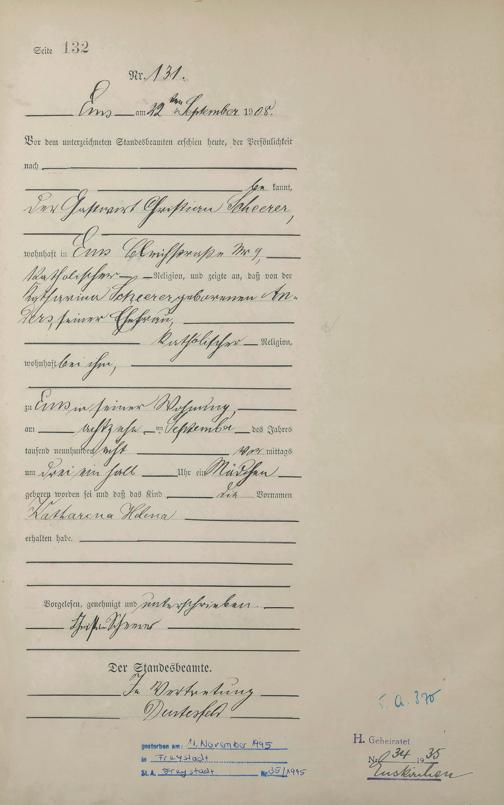 Seite 132
Nr. 131.
Ems am 12ten September 1908.
Vor dem unterzeichneten Standesbeamten erschien heute, der Persönlichkeit
nach
be kannt,
der Gastwirt Christian Scheerer,
wohnhaft in Ems Bleichstraße Nr 9,
katholischer Religion, und zeigte an, daß von der
Katharina Scheerer geborenen An-
ders, seiner Ehefrau,
katholischer Religion,
wohnhaft bei ihm,
zu Ems in seiner Wohnung,
am achtzehn ten September des Jahres
tausend neunhundert acht vor mittags
um drei ein halb Uhr ein Mädchen
geboren worden sei und daß das Kind die Vornamen
Katharina Helena
erhalten habe.
Vorgelesen, genehmigt und unterschrieben.
Scheerer
Der Standesbeamte.
In Vertretung
gestorben am: 11. November 1995
in Freystadt
St. A. Freystadt Nr. 35/1995
H. Geheiratet
Nr. 34 1935
Euskirchen